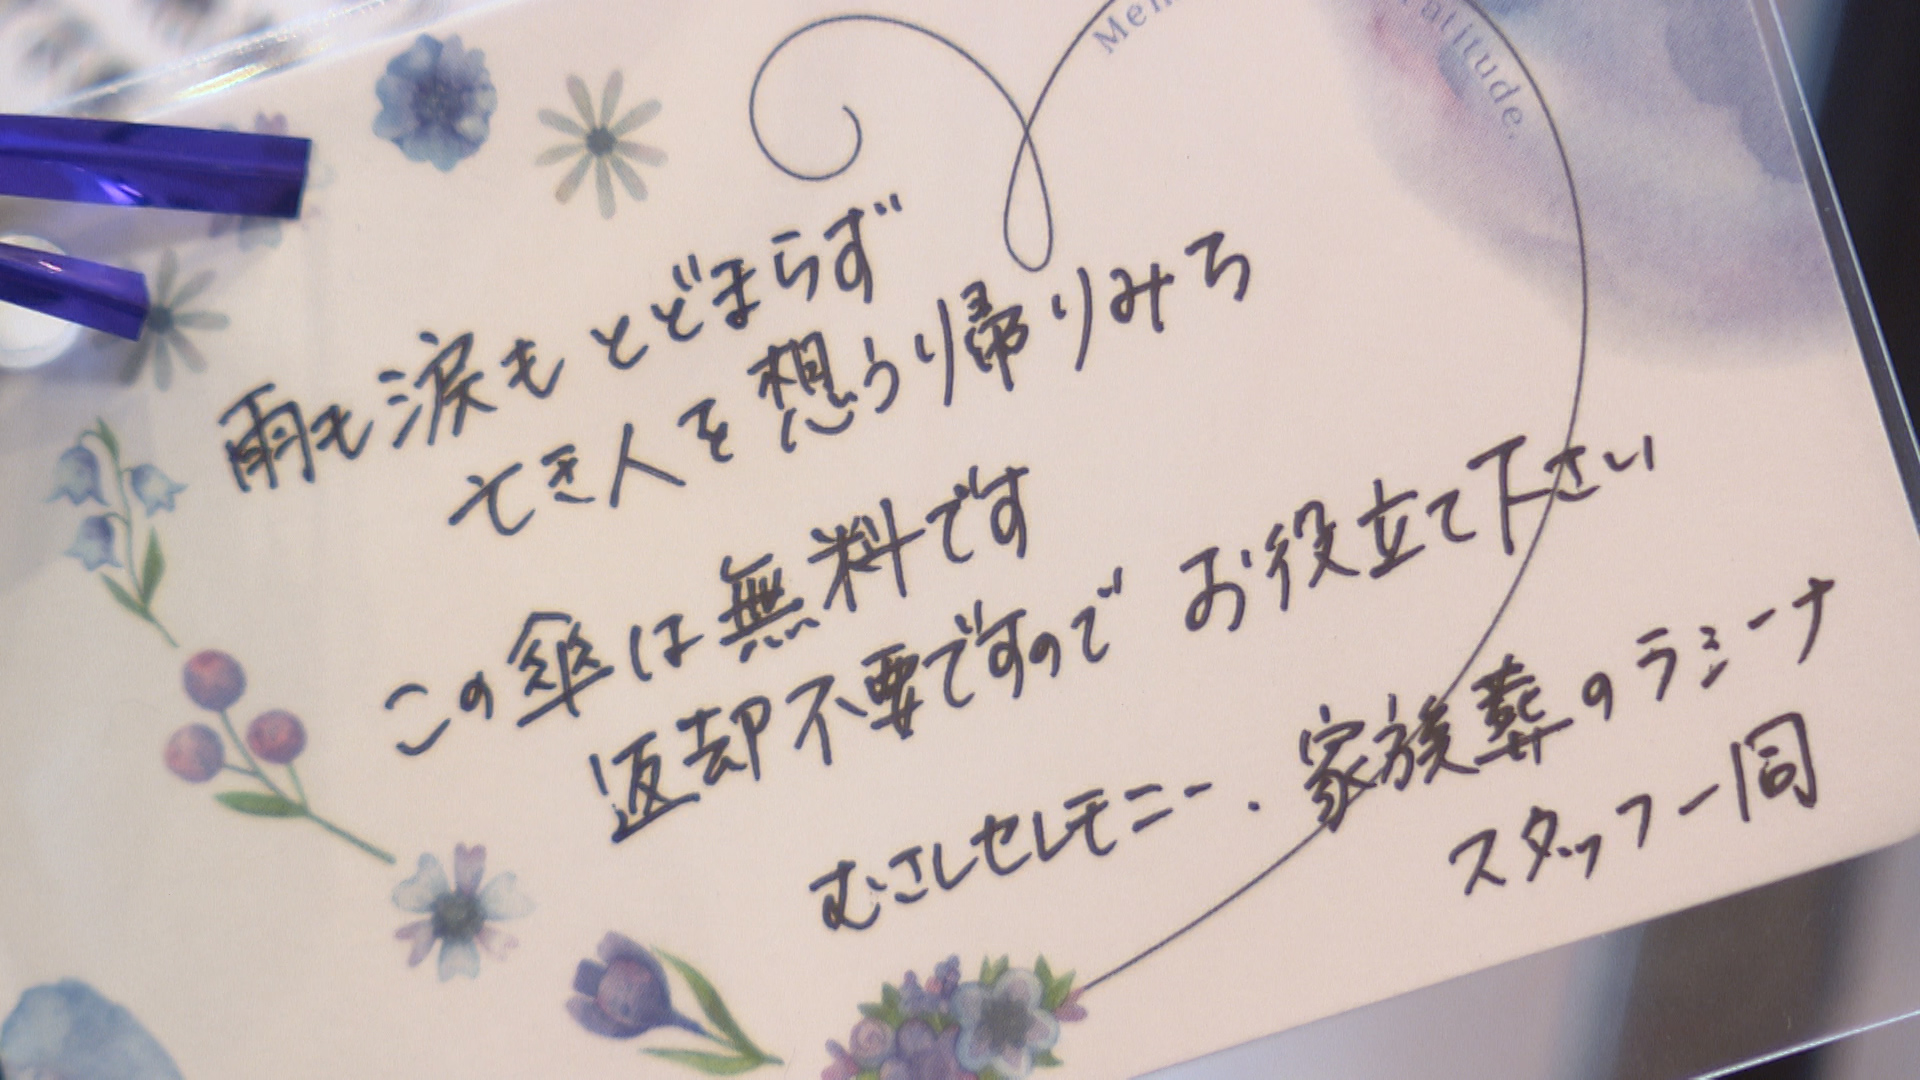 雨も涙もとどまらず
亡き人を想うり帰りみち
この傘は無料です
返却不要ですので お役立て下さい
むさしセレモニー・家族葬のラミーナ
スタッフ一同